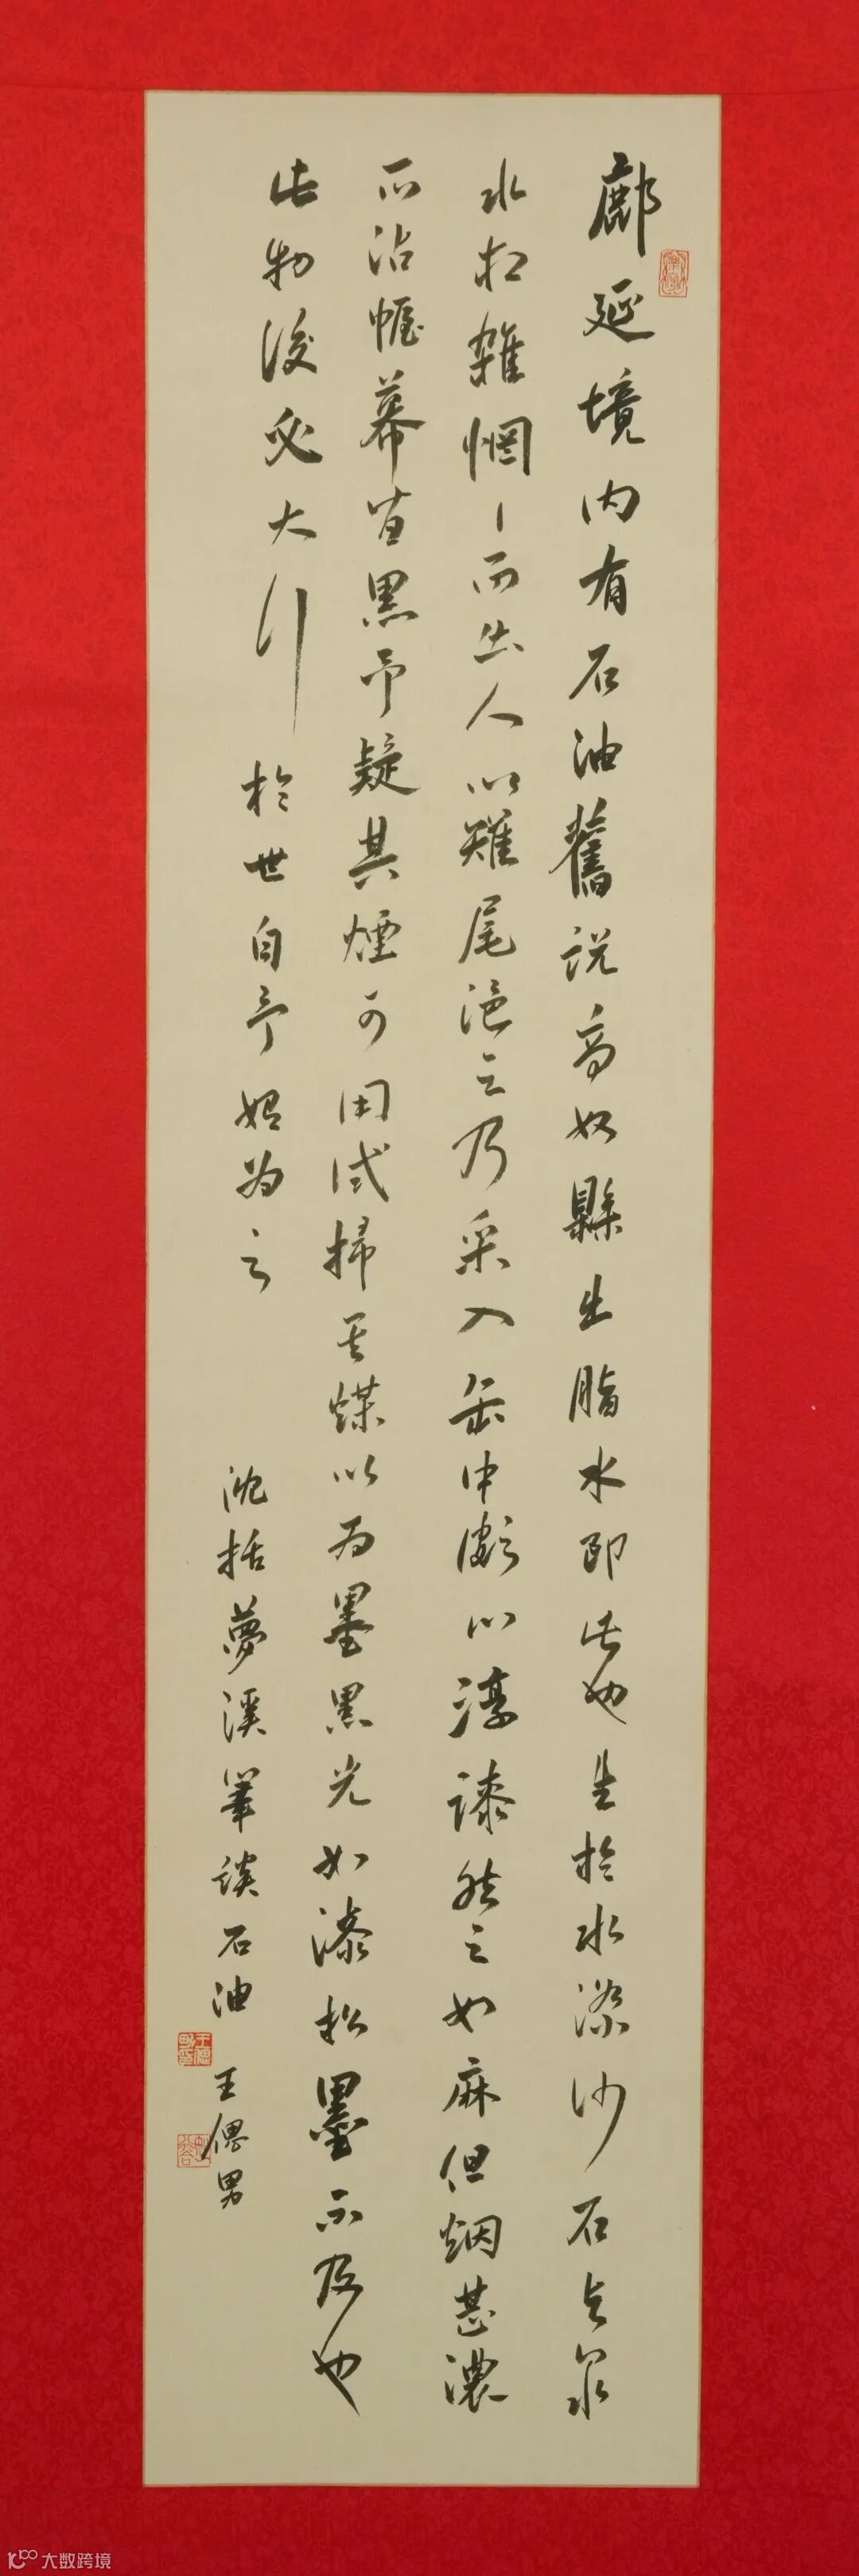 鄜延境内有石油舊説高奴縣出脂水即此也生於水際沙石与泉
水相雜惘〻而出人以雉尾浥之乃采入缶中頗似淳漆然之如麻但烟甚濃
所沾幄幕皆黑予疑其煙可用試掃其煤以為墨黑光如漆松墨不及也
此物後必大行於世自予始為之
沈括夢溪筆談石油 王偲男
大数跨境